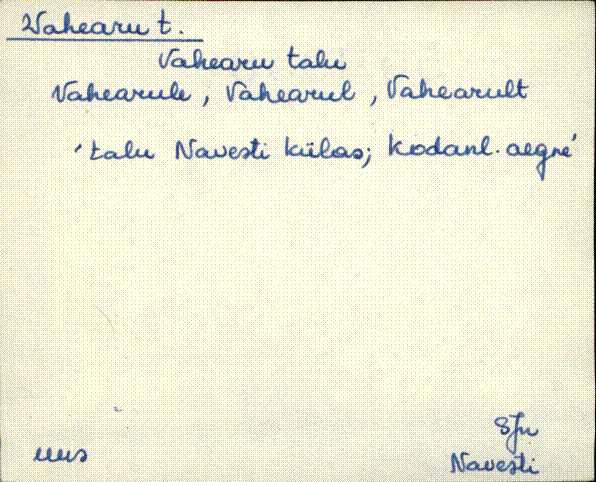 Vahearu t.
Vahearu talu
Vahearule, Vahearul, Vahearult
'talu Navesti külas; kodanl. aegne'
SJn
uus
Navesti